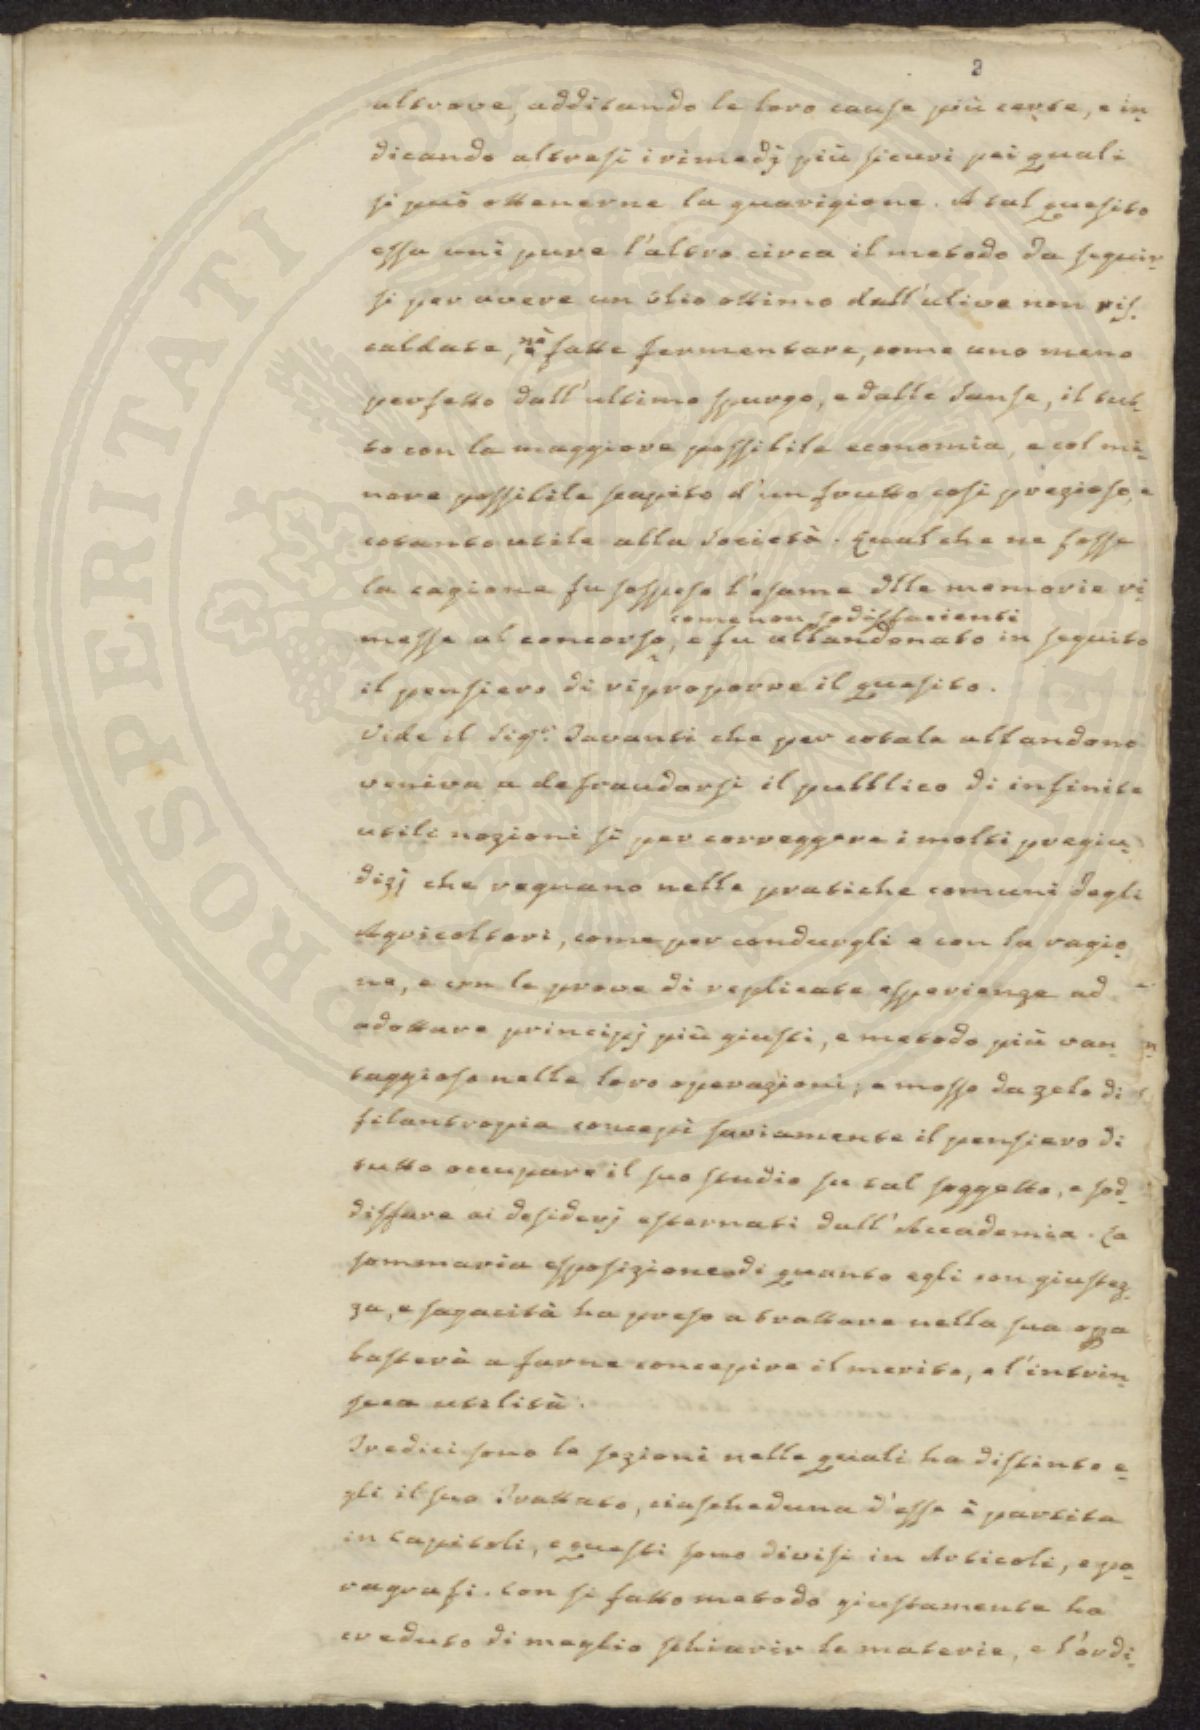 2
altrove, additando le loro cause più certe, e in-
dicando altresì i rimedj più sicuri pei quali
si può ottenerne la guarigione. A tal quesito
essa unì pure l'altro circa il metodo da seguir-
si per avere un olio ottimo dall'ulive non ris-
caldate, nè fatte fermentare, come uno meno
perfetto dall'ultimo spurgo, e dalle Sanse, il tut-
to con la maggiore possibile economia, e col mi-
nore possibile scapito d'un frutto così prezioso, e
cotanto utile alla Società. Qual che ne fosse
la cagione fu sospeso l'esame dlle memorie ri-
come non sodisfacienti
messe al concorso, e fu abbandonato in seguito
il pensiero di riproporre il quesito.
Vide il Sigr. Tavanti che per cotale abbandono
veniva a defraudarsi il pubblico di infinite
utili nozioni sì per correggere i molti pregiu-
dizj che regnano nelle pratiche comuni degli
Agricoltori, come per condurgli e con la ragio-
ne, e con le prove di replicate esperienze ad
adottare principj più giusti, e metodo più van-
taggioso nelle loro operazioni; e mosso da zelo di
filantropia concepì saviamente il pensiero di
tutto occupare il suo studio su tal soggetto, e sod-
disfare ai desiderj esternati dall'Accademia. La
sommaria esposizione di quanto egli con giustez-
za, e sagacità ha preso a trattare nella sua opa
basterà a farne concepire il merito, e l'intrin-
seca utilità.
Tredici sono le sezioni nelle quali ha distinto e-
gli il suo Trattato, ciascheduna d'esse è partita
in Capitoli, e questi sono divisi in Articoli, e pa-
ragrafi. Con sì fatto metodo giustamente ha
creduto di meglio schiarir le materie, e l'ordi-
PROSPERITATI PUBLICAE AUGENDAE